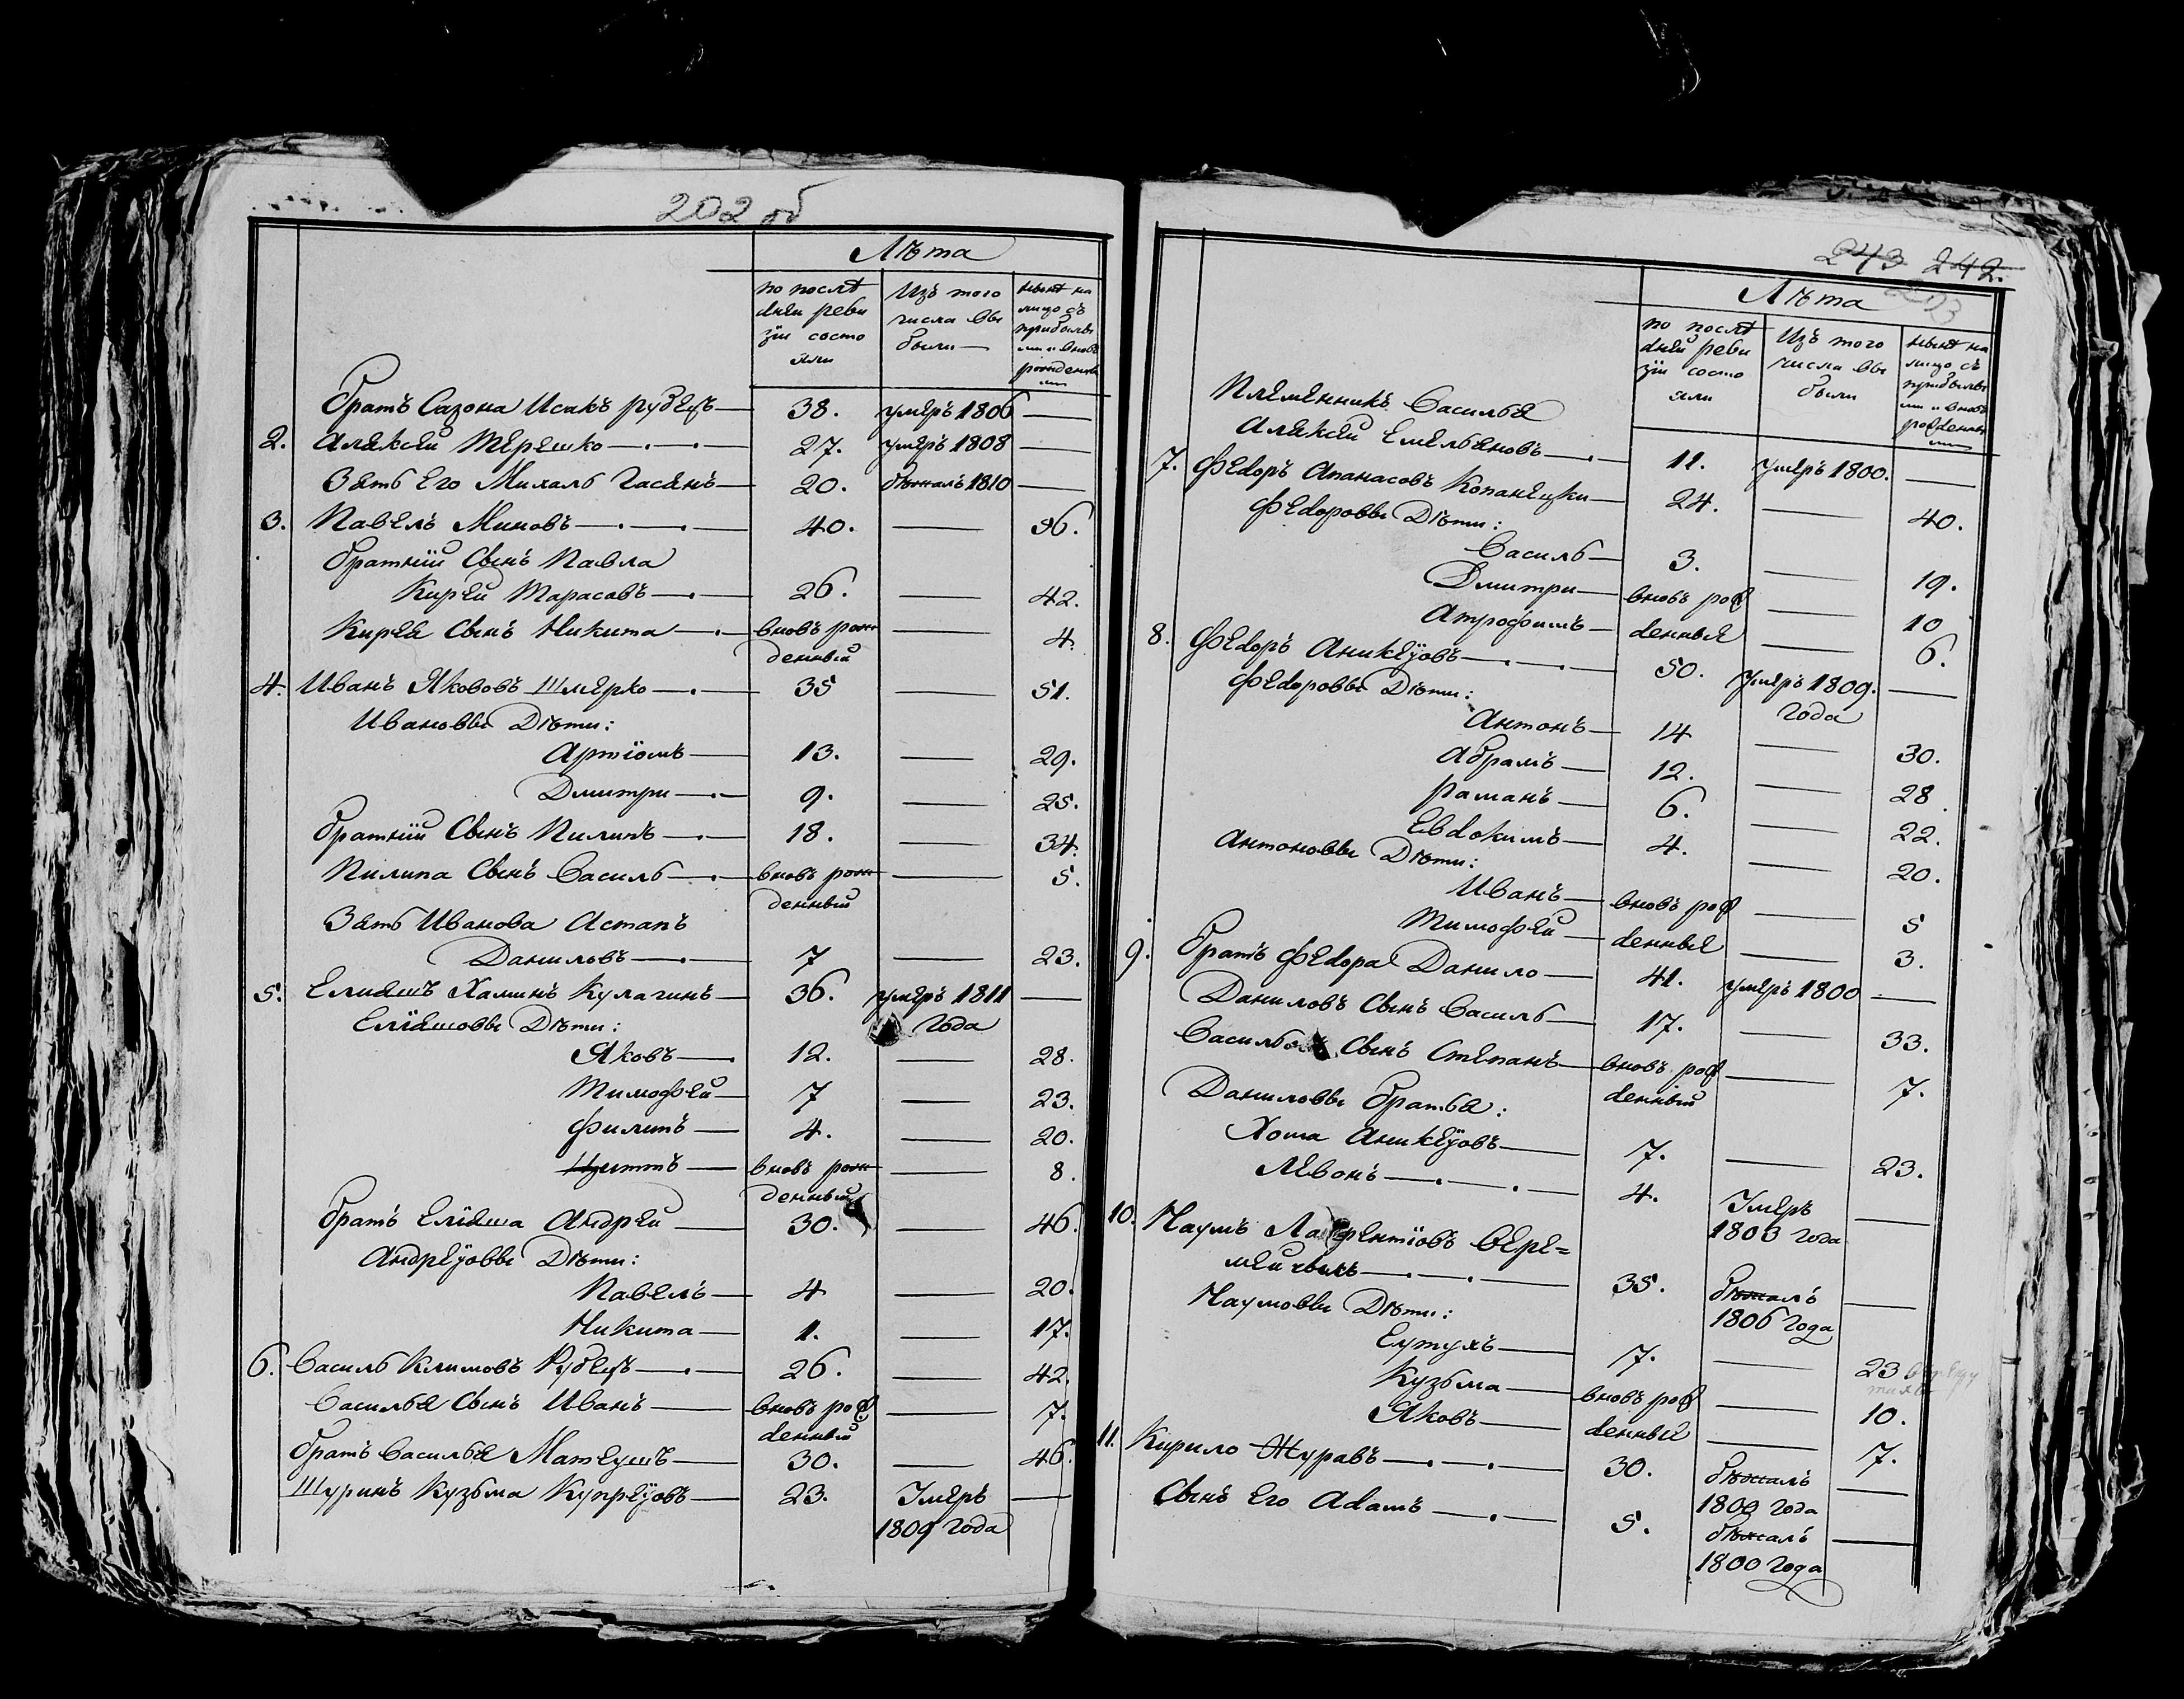 202 об
Лѣта
по послѣ
дней реви
зіи состо
яли
Изъ того
числа вы
были
нынѣ на
лицо съ
прибылы
ми и вновь
рожденны
ми
братъ Сазона Исакъ рубецъ 38. умеръ 1806
2. Алексей Терешко 27. умеръ 1808
Зять Его Михаль Гасянъ 20. бѣжалъ 1810
3. Павелъ Миновъ 40. 56.
братній Сынъ Павла
Кирей Тарасовъ 26. 42.
Кирея Сынъ Никита вновь рож 4.
денный
4. Иванъ Якововъ Шмерко 35 51.
Ивановы Дѣти:
Артіомъ 13. 29.
Дмитри 9. 25.
братній Сынъ Пилипъ 18. 34.
Пилипа Сынъ Василь вновь рож 5.
денный
Зять Иванова Астапъ
Даниловъ 7 23.
5. Елияшъ Хаминъ Кулагинъ 36. умеръ 1811
Еліяшовы Дѣти: года
Яковъ 12. 28.
Тимофей 7 23.
Филипъ 4. 20.
вновь рож 8.
денный
братъ Еліяша Андрей 30. 46.
Андреўовы Дѣти:
Павелъ 4 20.
Никита 1. 17.
6. Василь Климовъ Рубецъ 26. 42.
Василья Сынъ Иванъ вновь рож 7.
денный
братъ Василья Матеушъ 30. 46.
Шуринъ Кузьма Купреўовъ 23. Умеръ
1809 года
243 242.
203
Лѣта
по послѣ
дней реви
зіи состо
яли
Изъ того
числа вы
были
нынѣ на
лицо съ
прибылы
ми и вновь
рожденны
ми
Племенникъ Василья
Алексей Емельяновъ 11. умеръ 1800.
7. Федоръ Апанасовъ Копанецки 24. 40.
Федоровы Дѣти:
Василь 3. 19.
Дмитри вновь рож 10
Атрофимъ денные 6.
8. Федоръ Аникеўовъ 50. Умеръ 1809.
Федоровы Дѣти: года
Антонъ 14 30.
Абрамъ 12. 28.
Раманъ 6. 22.
Евдокимъ 4. 20.
Антоновы Дѣти:
Иванъ вновь рож 5
Тимофей денные 3.
9. братъ Федора Данило 41. умеръ 1800
Даниловъ Сынъ Василь 17. 33.
Сынъ Степанъ вновь рож 7.
денный
Даниловы братья:
Хома Аникеўовъ 7. 23.
Левонъ 4. Умеръ
1803 года
10. Наумъ Лаврентіовъ Вере=
мейчикъ 35. бѣжалъ
1806 года
Наумовы Дѣти:
Еутухъ 7. 23
Кузьма вновь рож 10.
Яковъ денные 7.
11. Кирило Журавъ 30. бѣжалъ
1800 года
Сынъ Его Адамъ 5. бѣжалъ
1800 года